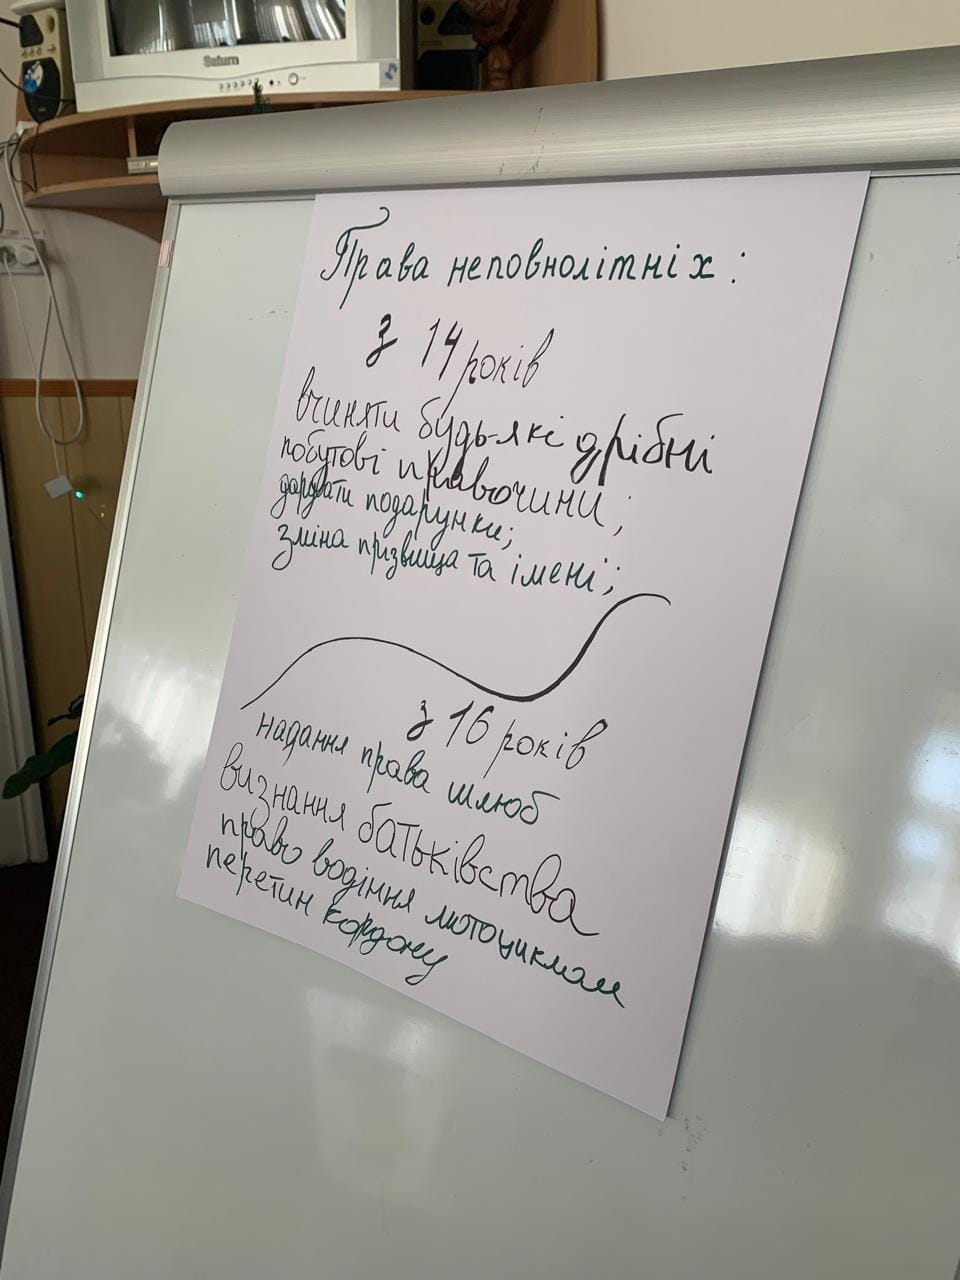 Saturn
Права неповнолітніх:
з 14 років
вчиняти будь-які дрібні
побутові правочини;
дарувати подарунки;
зміна прізвища та імені;
з 16 років
надання права шлюб
визнання батьківства
право водіння мотоциклом
перетин кордону